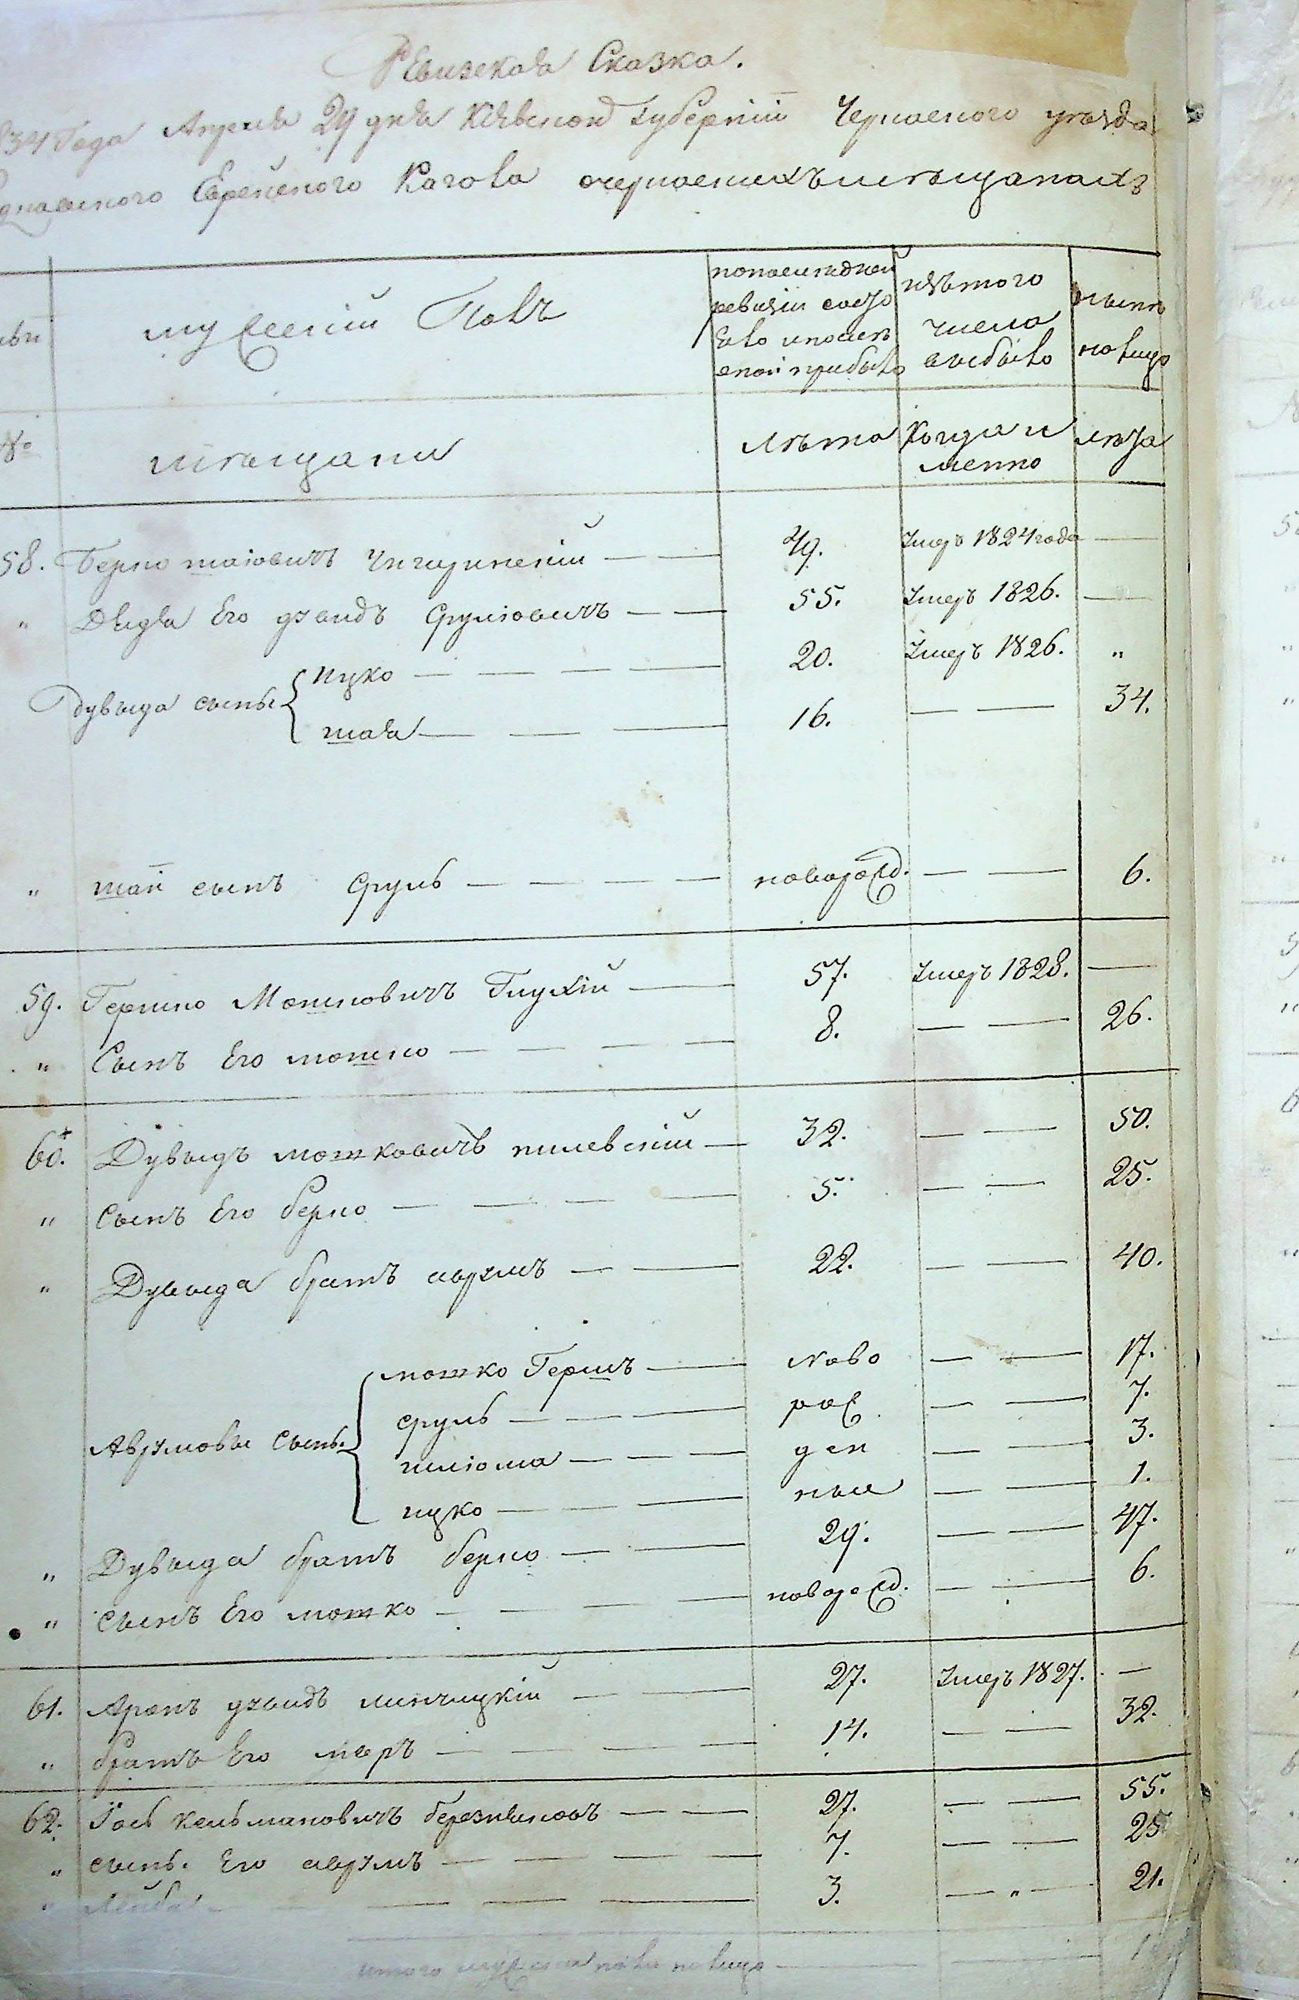 Ревизская Сказка.
834 Года Апреля 29 дня Киевской Губернии Черкаского уезда
Еврейского Кагала о черкаскихъ мещанахъ
мужеский Полъ
по последней ревизии состояло и после оной прибыло
изъ того числа выбыло
ныне на лицо
№
мещане
лета
Когда именно
лета
58. Берко шаювичъ чигиринский — — 49. умеръ 1824 года —
" Его Срулиовичъ — — 55. умеръ 1826. —
Дувыда сыны { ицко — — — — 20. умеръ 1826. "
шая — — — 16. — — 34.
" шаи сынъ Сруль — — — — новорожд. — — 6.
59. Гершко Мошковичъ Глухий — 57. умеръ 1828. —
" Сынъ Его мошко — — — — 8. — — 26.
60. Дувыдъ мошковичъ — 32. — — 50.
" Сынъ Его берко — — — — 5. — — 25.
" Дувыда братъ аврумъ — — 22. — — 40.
Аврумовы сыны { мошко Гершъ — ново — — 17.
сруль — — — рож — — 7.
шлиома — — — ден — — 3.
ицко — — — ные — — 1.
" Дувыда братъ берко — — 29. — — 47.
" сынъ Его мошко — — — новорожд. — — 6.
61. Аронъ — — 27. умеръ 1827. —
" братъ Его меръ — — — — 14. — — 32.
62. Иось кельмановичъ — — 27. — — 55.
" сынъ. Его аврумъ — — — — 7. — — 25
" Лейба — — — — 3. — " — 21.
итого мужеска пола на лицо — — —